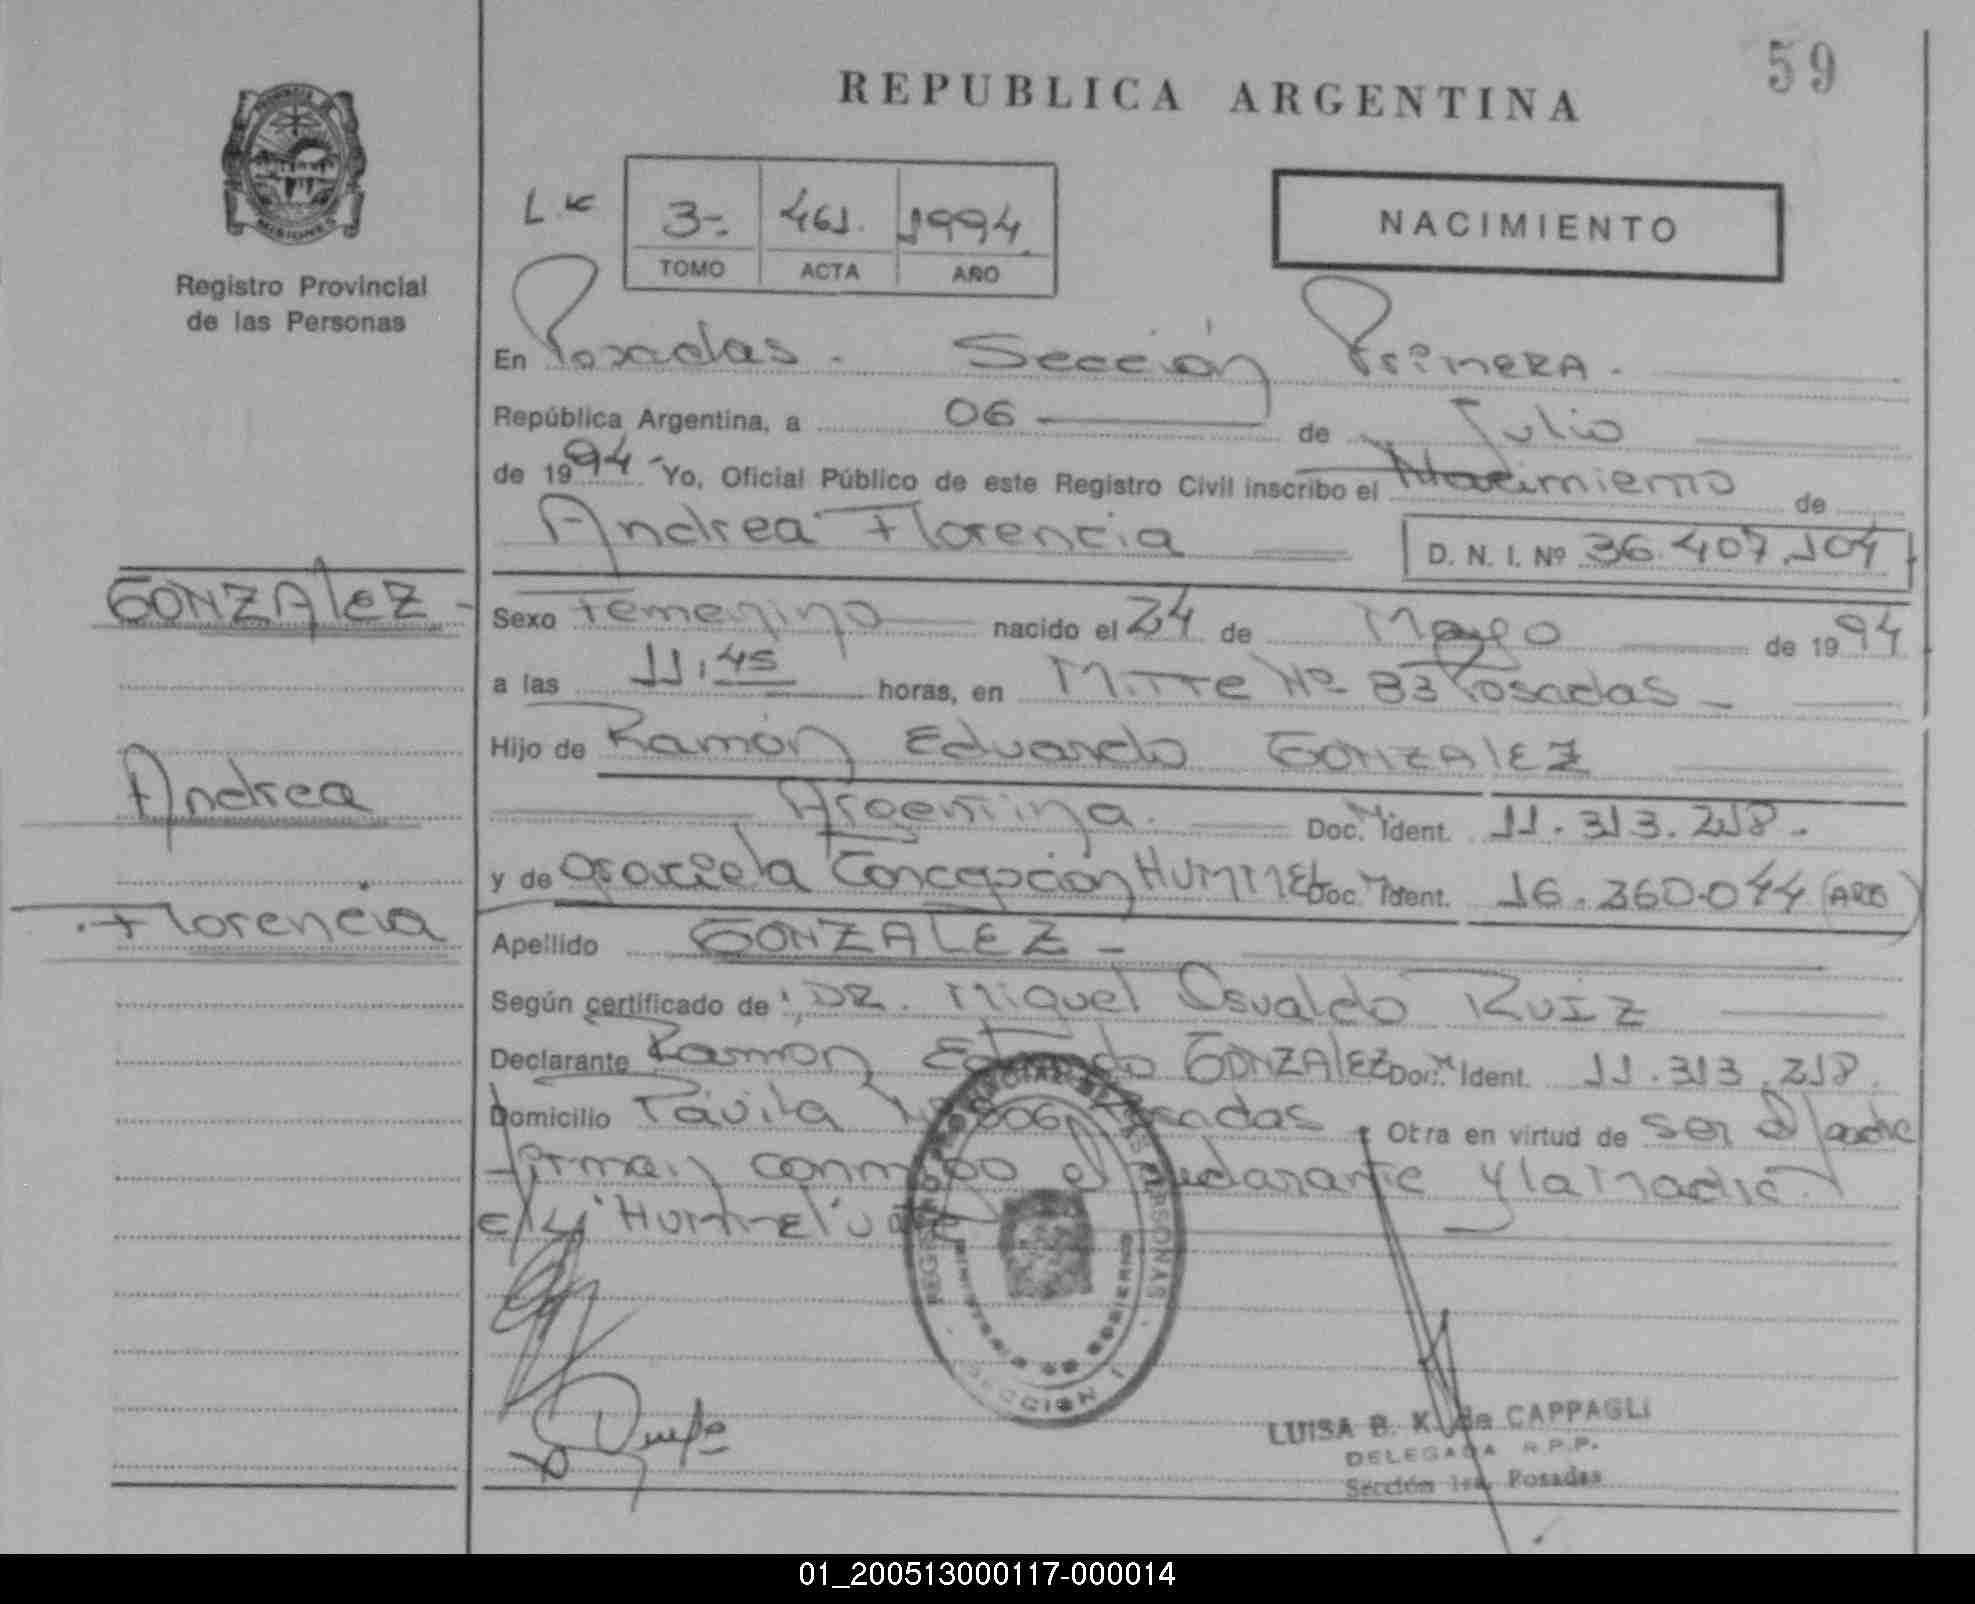 59
REPUBLICA ARGENTINA
PROVINCIA DE
MISIONES
Registro Provincial
de las Personas
NACIMIENTO
3-. 461. 1994.
TOMO ACTA AÑO
En Posadas - Sección Primera.
República Argentina, a 06 de Julio
de 1994 - Yo, Oficial Público de este Registro Civil inscribo el Nacimiento de
Andrea Florencia D. N. I. Nº 36.407.104
GONZAlEZ -
Sexo Femenino nacido el 24 de Mayo de 1994
a las 11,45 horas, en Mitre Nº 83 Posadas -
Hijo de Ramón Eduardo GONZAlEZ
Andrea
Argentina. Doc. Ident. 11.313.218.
y de Graciela Concepción HUMMEL Doc. Ident. 16.360.044 (ARG)
Florencia
Apellido GONZALEZ -
Según certificado de: DR. Miguel Osvaldo RUIZ
Declarante Ramón Eduardo GONZAlEZ Doc. Ident. 11.313.218.
Domicilio Posadas Otra en virtud de ser el padre
firman conmigo el declarante y la madre
e/l "Hummel" vale
REGISTRO PROVINCIAL DE LAS PERSONAS
MINISTERIO DE GOBIERNO
SECCION 1
LUISA B. K. de CAPPAGLI
DELEGADA R.P.P.
Sección 1ra. Posadas
01_200513000117-000014